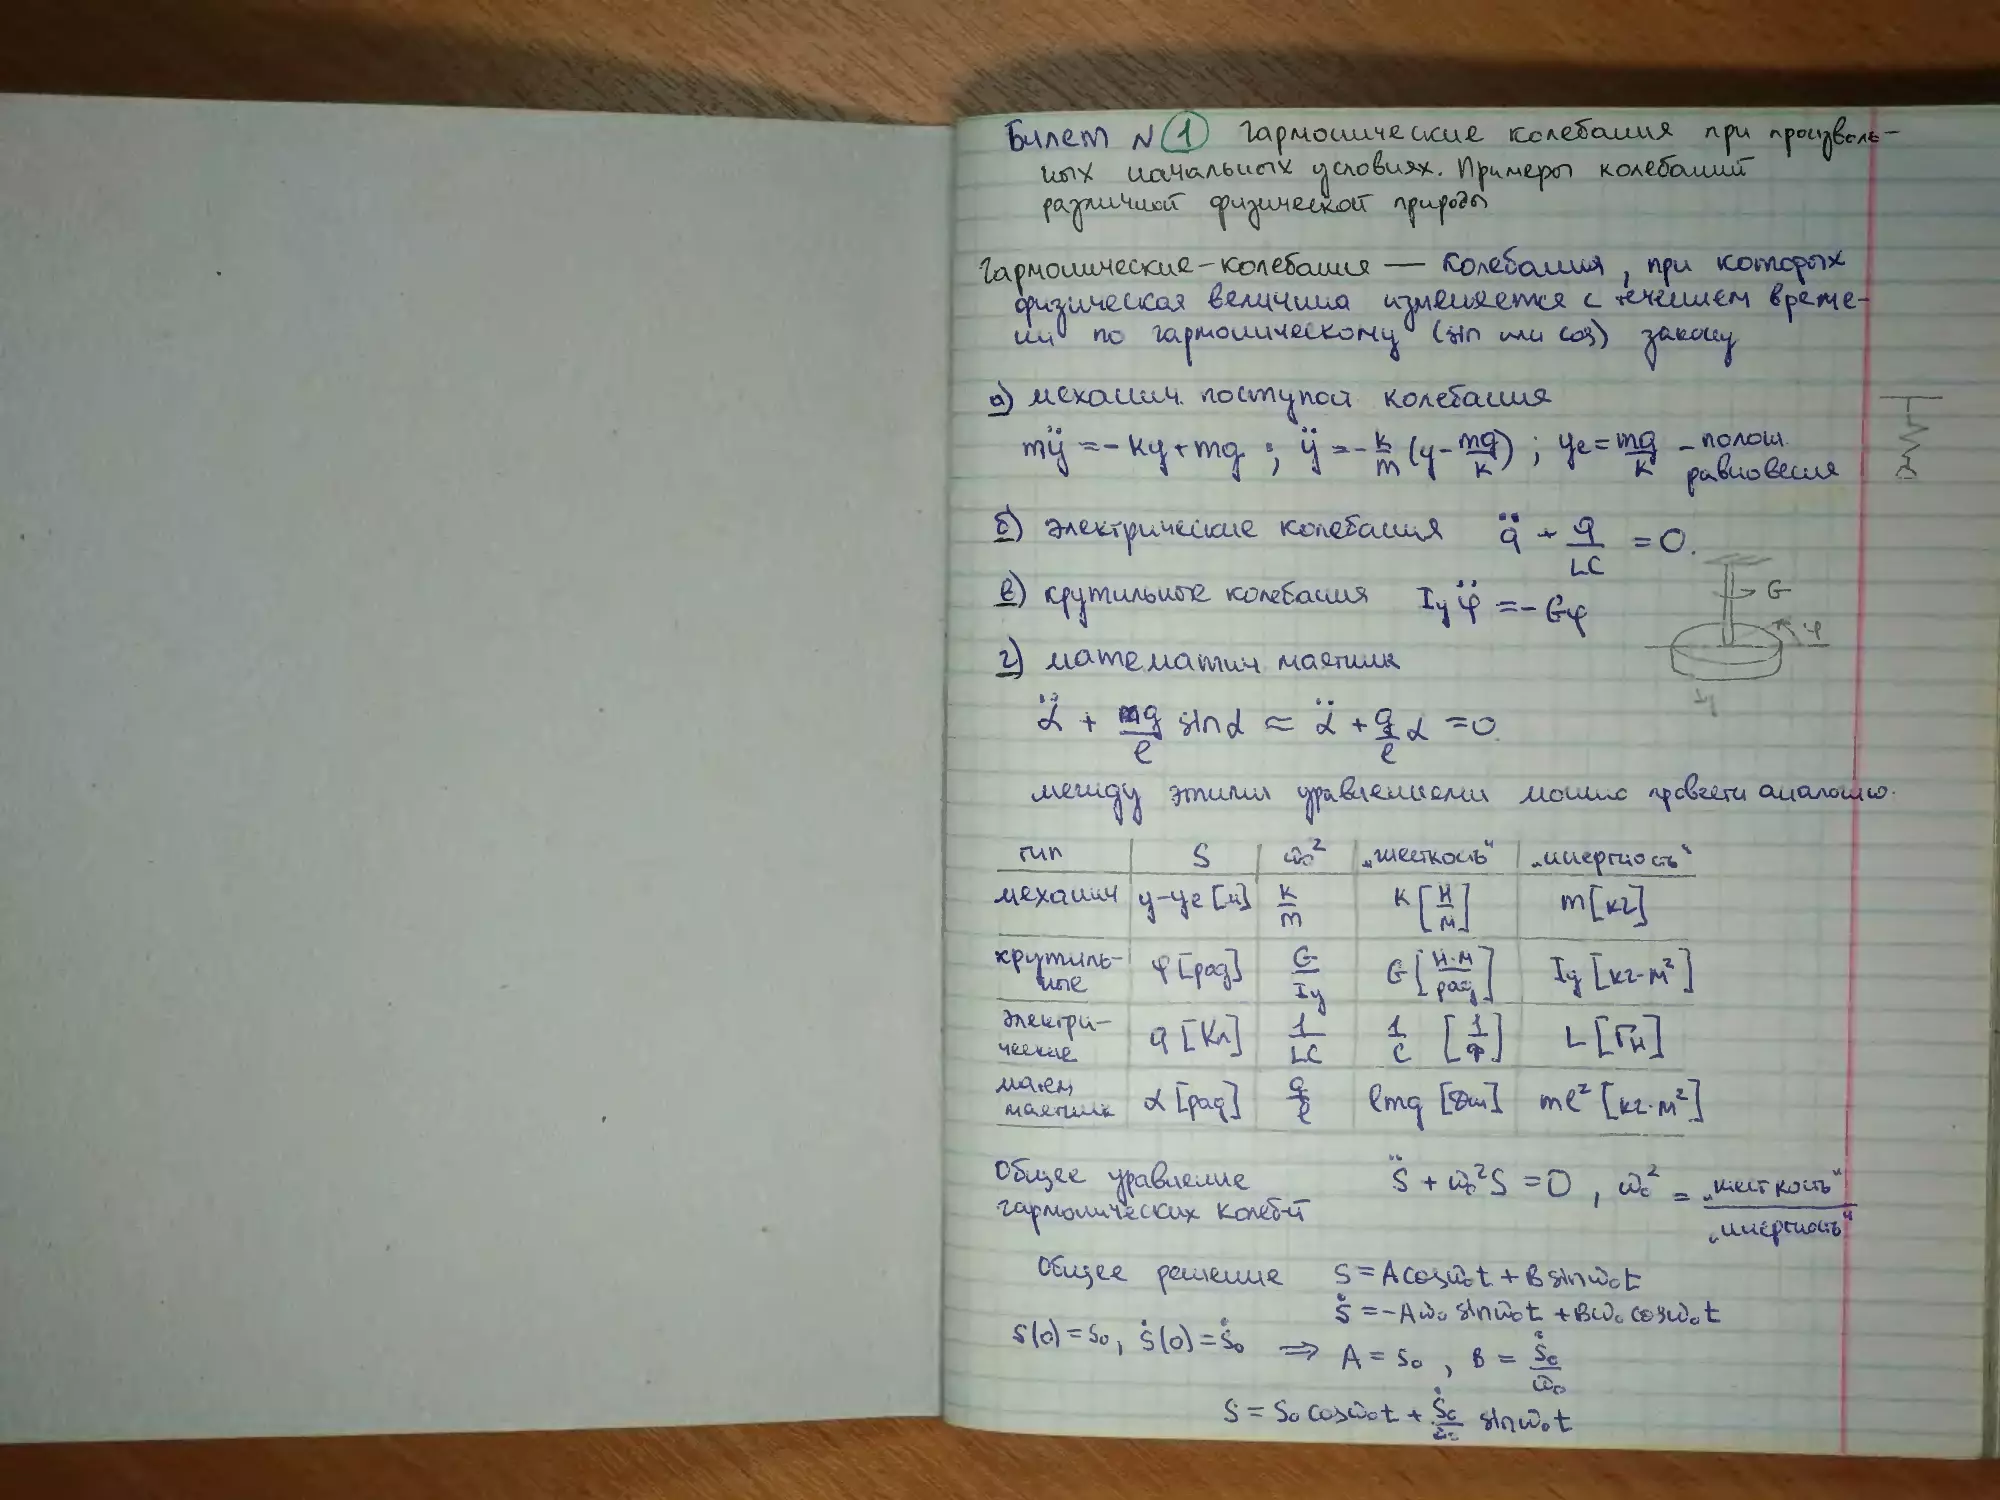 Билет N 1 Гармонические колебания при произволь-
ных начальных условиях. Примеры колебаний
различной физической природы
Гармонические-колебание — колебания, при которых
физическая величина изменяется с течением време-
ни по гармоническому (sin или cos) закону
а) механич. поступат колебания
mÿ = -ky + mg ; ÿ = -k/m (y - mg/k) ; yе = mg/k - полож.
равновесия
б) электрические колебания q̈ + q/LC = 0.
в) крутильные колебания Iy φ̈ = -Gφ
G
φ
Iy
г) математич маятник
α̈ + mg/l sinα ≈ α̈ + g/l α = 0.
между этими уравнениями можно провести аналогию.
тип | S | ω₀² | „жесткость“ | „инертность“
механич | y-yе [м] | k/m | k [Н/м] | m [кг]
крутиль-
ные | φ [рад] | G/Iy | G [Н·м/рад] | Iy [кг·м²]
электри-
ческие | q [Кл] | 1/LC | 1/C [1/Ф] | L [Гн]
матем
маятник | α [рад] | g/l | lmg [Дж] | ml² [кг·м²]
Общее уравнение S̈ + ω₀²S = 0 , ω₀² = „жесткость“ / „инертность“
гармонических колеб-й
Общее решение S = A cosω₀t + B sinω₀t
Ṡ = -Aω₀ sinω₀t + Bω₀ cosω₀t
S(0) = S₀, Ṡ(0) = Ṡ₀ ⇒ A = S₀ , B = Ṡ₀/ω₀
S = S₀ cosω₀t + Ṡ₀/ω₀ sinω₀t